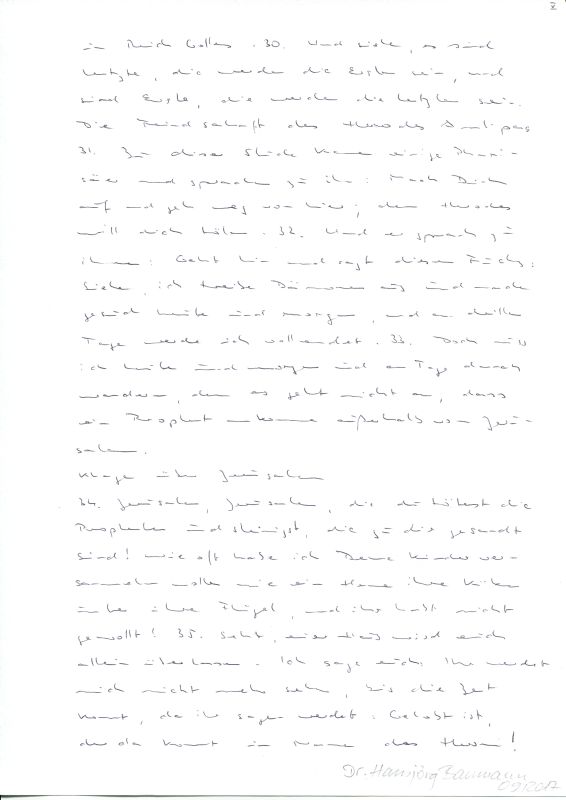 im Reich Gottes. 30. Und siehe, es sind
letzte, die werden die Erste sein, und
sind Erste, die werden die letzten sein.
Die Feindschaft des Herodes Antipas
31. Zu dieser Stunde kamen einige Phari-
säer und sprachen zu ihm: Mach Dich
auf und geh weg von hier; denn Herodes
will dich töten. 32. Und er sprach zu
ihnen: Geht hin und sagt diesem Fuchs:
Siehe, ich treibe Dämonen aus und mache
gesund heute und morgen, und am dritten
Tage werde ich vollendet. 33. Doch muss
ich heute und morgen und am Tage danach
wandern, denn es geht nicht an, dass
ein Prophet umkomme außerhalb von Jeru-
salem.
Klage über Jerusalem
34. Jerusalem, Jerusalem, die du tötest die
Propheten und steinigst, die zu dir gesandt
sind! Wie oft habe ich Deine Kinder ver-
sammeln wollen wie eine Henne ihre Küken
unter ihre Flügel, und ihr habt nicht
gewollt! 35. Seht, euer Haus wird euch
allein überlassen. Ich sage euch: Ihr werdet
mich nicht mehr sehen, bis die Zeit
kommt, da ihr sagen werdet: Gelobt ist,
der da kommt im Namen des Herrn!
Dr. Hansjörg Baumann